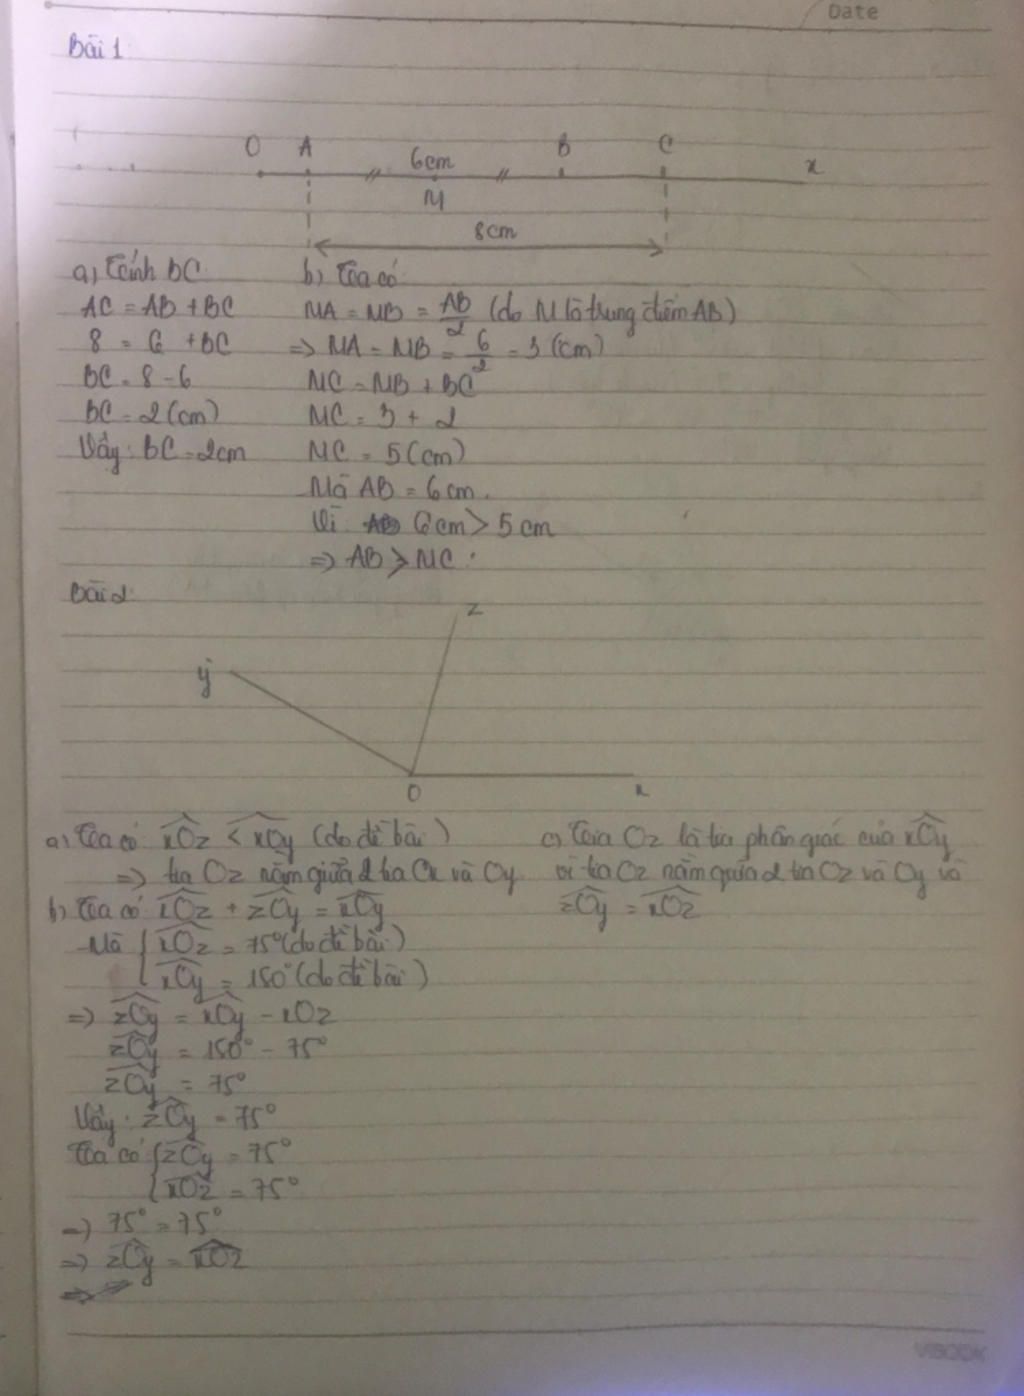 Date
Bài 1
O A 6cm B C x
M
8cm
a) Tính BC
AC = AB + BC
8 = 6 + BC
BC = 8 - 6
BC = 2 (cm)
Vậy: BC = 2cm
b) Ta có
MA = MB = AB/2 (do M là trung điểm AB)
=> MA = MB = 6/2 = 3 (cm)
MC = MB + BC
MC = 3 + 2
MC = 5 (cm)
Mà AB = 6 cm.
Vì 6cm > 5 cm
=> AB > MC
Bài 2
z
y
O x
a) Ta có xOz < xOy (do đề bài)
=> tia Oz nằm giữa 2 tia Ox và Oy
b) Ta có xOz + zOy = xOy
Mà { xOz = 75° (do đề bài)
{ xOy = 150° (do đề bài)
=> zOy = xOy - xOz
zOy = 150° - 75°
zOy = 75°
Vậy: zOy = 75°
Ta có { zOy = 75°
{ xOz = 75°
=> 75° = 75°
=> zOy = xOz
c) Tia Oz là tia phân giác của xOy
vì tia Oz nằm giữa 2 tia Oz và Oy và
zOy = xOz
VIBOOK